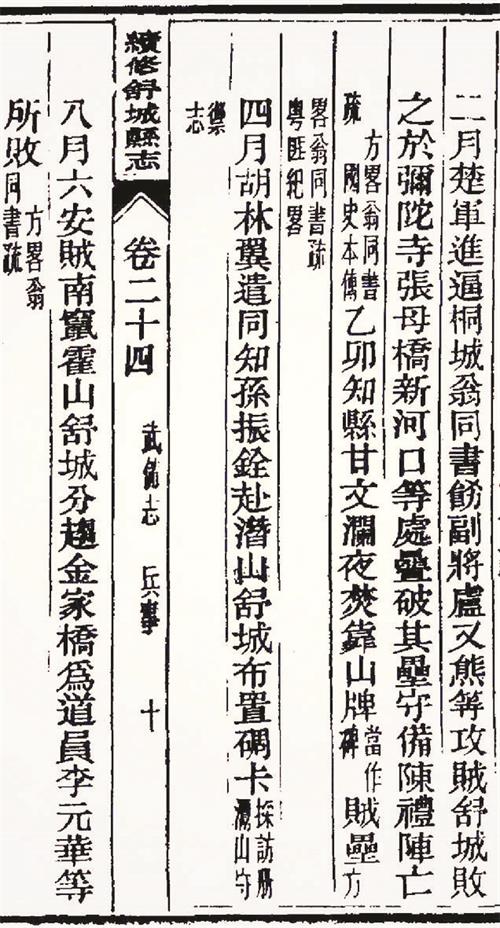 二月楚軍進逼桐城翁同書飭副將盧又熊等攻賊舒城敗
之於彌陀寺張母橋新河口等處疊破其壘守備陳禮陣亡
方畧翁同書疏 國史本傳 乙卯知縣甘文瀾夜焚靠山牌當作碑賊壘方
畧翁同書疏 粵匪紀畧
四月胡林翼遣同知孫振銓赴潛山舒城布置碉卡採訪册 灊山守
禦志
續修舒城縣志 卷二十四 武備志 兵事 十
八月六安賊南竄霍山舒城分趨金家橋爲道員李元華等
所敗方畧翁同書疏